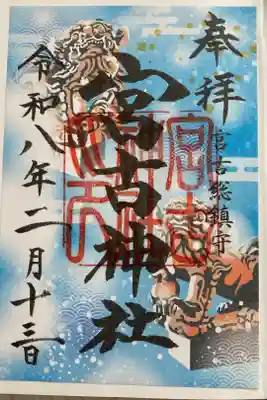 奉拝
宮古総鎮守
宮古神社
令和八年二月十三日